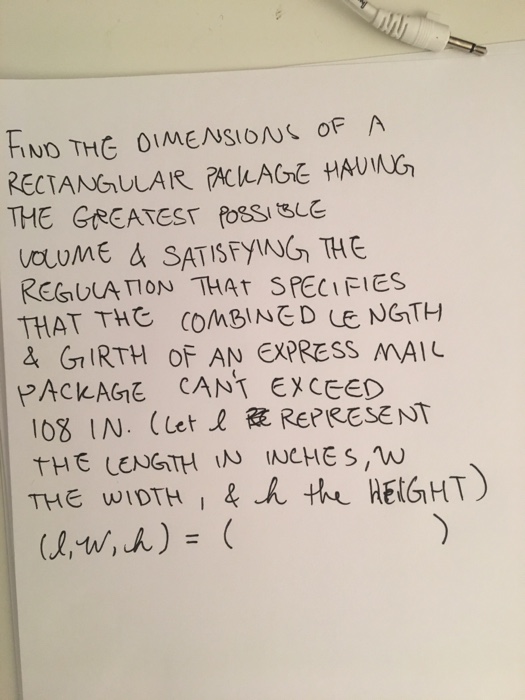 FIND THE DIMENSIONS OF A
RECTANGULAR PACKAGE HAVING
THE GREATEST POSSIBLE
VOLUME & SATISFYING THE
REGULATION THAT SPECIFIES
THAT THE COMBINED LENGTH
& GIRTH OF AN EXPRESS MAIL
PACKAGE CAN'T EXCEED
108 IN. (Let l REPRESENT
THE LENGTH IN INCHES, W
THE WIDTH, & h the HEIGHT)
(l, w, h) = ( )